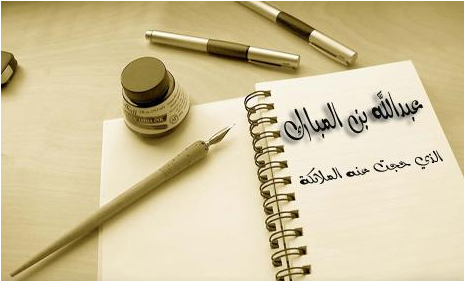 عبدالله بن المبارك
الذي حجت عنه الملائكة